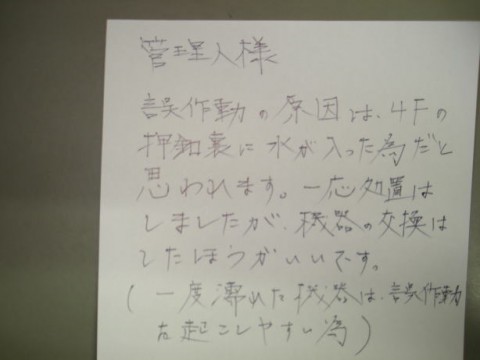 管理人様
誤作動の原因は、4Fの
押釦裏に水が入った為だと
思われます。一応処置は
しましたが、機器の交換は
したほうがいいです。
(一度濡れた機器は、誤作動
を起こしやすい為)